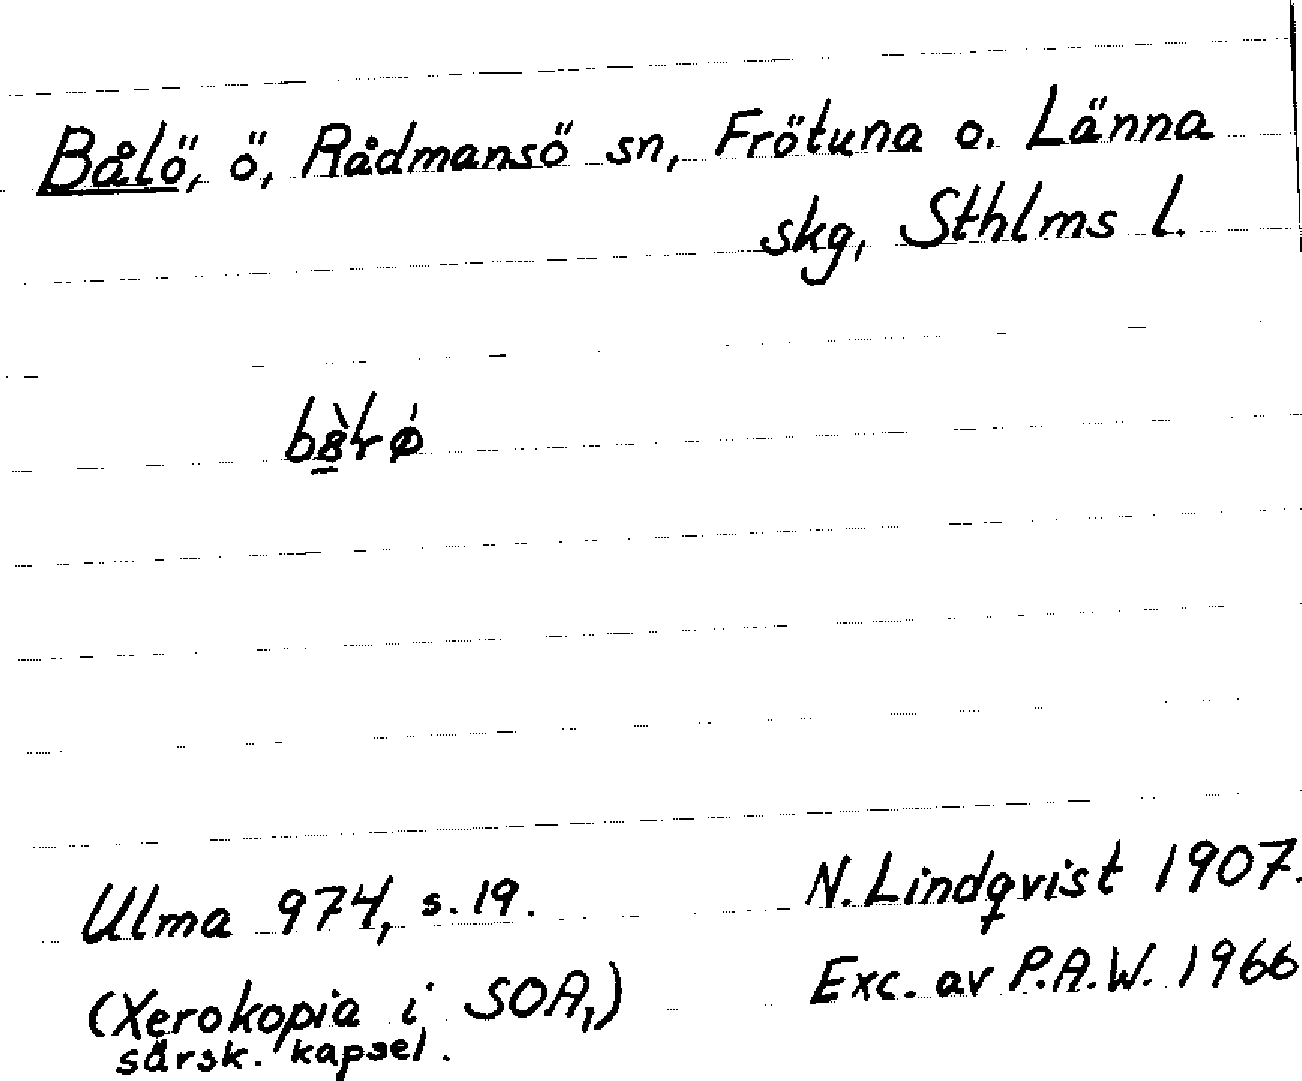 Bålö, ö, Rådmansö sn, Frötuna o. Länna
skg, Sthlms l.
Ulma 974, s. 19.
N. Lindqvist 1907.
(Xerokopia i SOA,)
särsk. kapsel.
Exc. av P.A.W. 1966